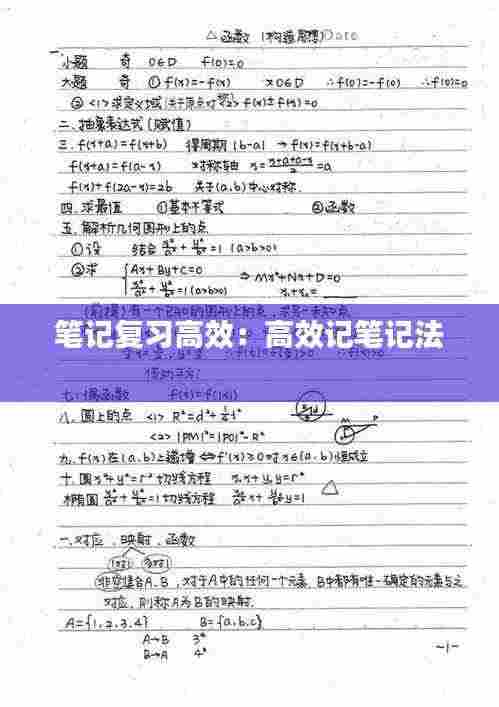 △函数（构造思想）Date
小题 奇 0∈D f(0)=0
大题 奇 ①f(x)=-f(x) x0∈D ∴f(0)=-f(0) ∴f(0)=0
②<1>求定义域(关于原点对称)<2>f(x)±f(x)=0
二、抽象表达式(赋值)
三、f(x+a)=f(x+b) 得周期|b-a| → f(x)=f(x+b-a)
f(x+a)=f(a-x) 对称轴由 x=(x+a+a-x)/2=a
f(x)+f(2a-x)=2b 关于(a.b)中心对称.
四.求最值 ①基本不等式 ②函数
五.解析几何图形上的点
①设 结合 x²/a²+y²/b²=1 (a>b>0)
②求 {Ax+By+C=0 ⇒ Mx²+Nx+D=0
x²/a²+y²/b²=1(a>b>0) x₁+x₂=
笔记复习高效：高效记笔记法
七.偶函数 f(x)=f(|x|)
八.圆上的点 <1> R²=d²+¼l²
<2> |PM|²=|PO|²-R²
九.f(x)在(a.b)上递增⇔f'(x)≥0对x∈(a.b)恒成立
十.圆x²+y²=r²切线方程 x₀x+y₀y=r²
椭圆x²/a²+y²/b²=1切线方程
一.对应、映射、函数
非空集合A.B，对于A中的任何一个元素，B中都有唯一确定的元素与之
对应，则称A为B的映射.
A={1,2,3,4} B={a,b,c}
A→B 3⁴
B→A 4³
-1-